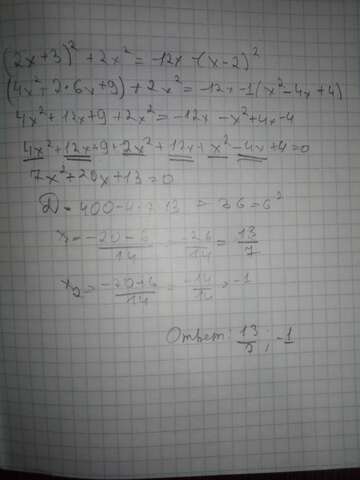 (2x+3)² + 2x² = -12x -(x-2)²
(4x² + 2·6x+9) + 2x² = -12x -1(x² -4x +4)
4x² + 12x + 9 + 2x² = -12x - x² +4x -4
4x² + 12x + 9 + 2x² + 12x + x² - 4x + 4 = 0
7x² + 20x + 13 = 0
D = 400 - 4·7·13 = 36 = 6²
x₁ = -20-6/14 = -26/14 = 13/7
x₂ = -20+6/14 = -14/14 = -1
Ответ: 13/7 ; -1